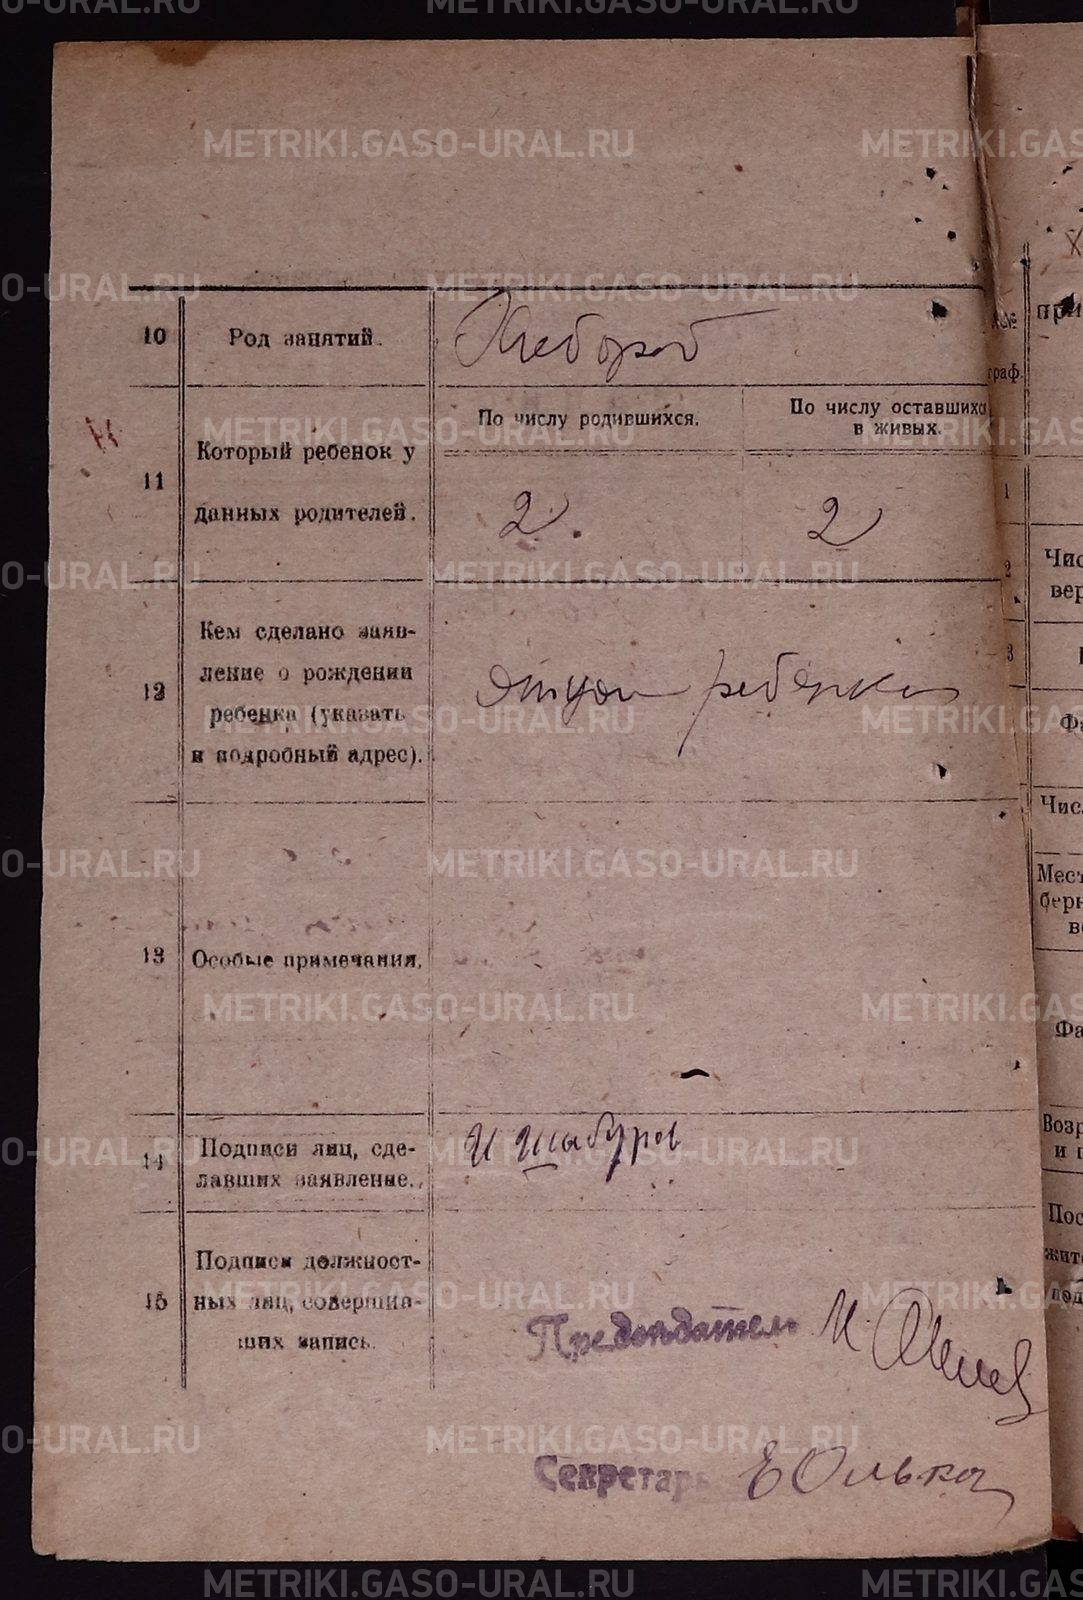 METRIKI.GASO-URAL.RU
10 Род занятий. Хлебороб
11 Который ребенок у данных родителей.
По числу родившихся.
По числу оставшихся
в живых.
2. 2
12 Кем сделано заяв-
ление о рождении
ребенка (указать
и подробный адрес).
отцом ребенка
13 Особые примечания.
14 Подписи лиц, сде-
лавших заявление.
И Шабуров
15 Подписи должност-
ных лиц, совершив-
ших запись.
Председатель И.
Секретарь Е Олька
№
граф.
1
2
3
при
Чис
вер
Фа
Чис.
Мест
берн
Фа
Возр
и п
Пос
жите
под